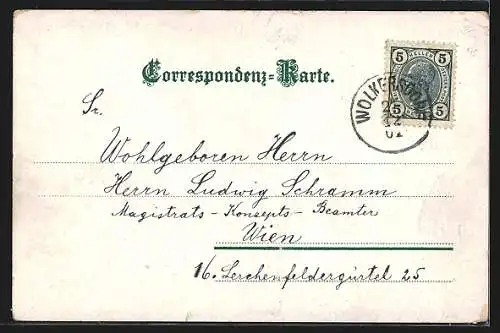 Correspondenz-Karte.
5 HELLER 5
5 5
WOLKERSDORF
12
01
Sr.
Wohlgeboren Herrn
Herrn Ludwig Schramm
Magistrats-Konzepts-Beamter
Wien
16. Lerchenfeldergürtel 25